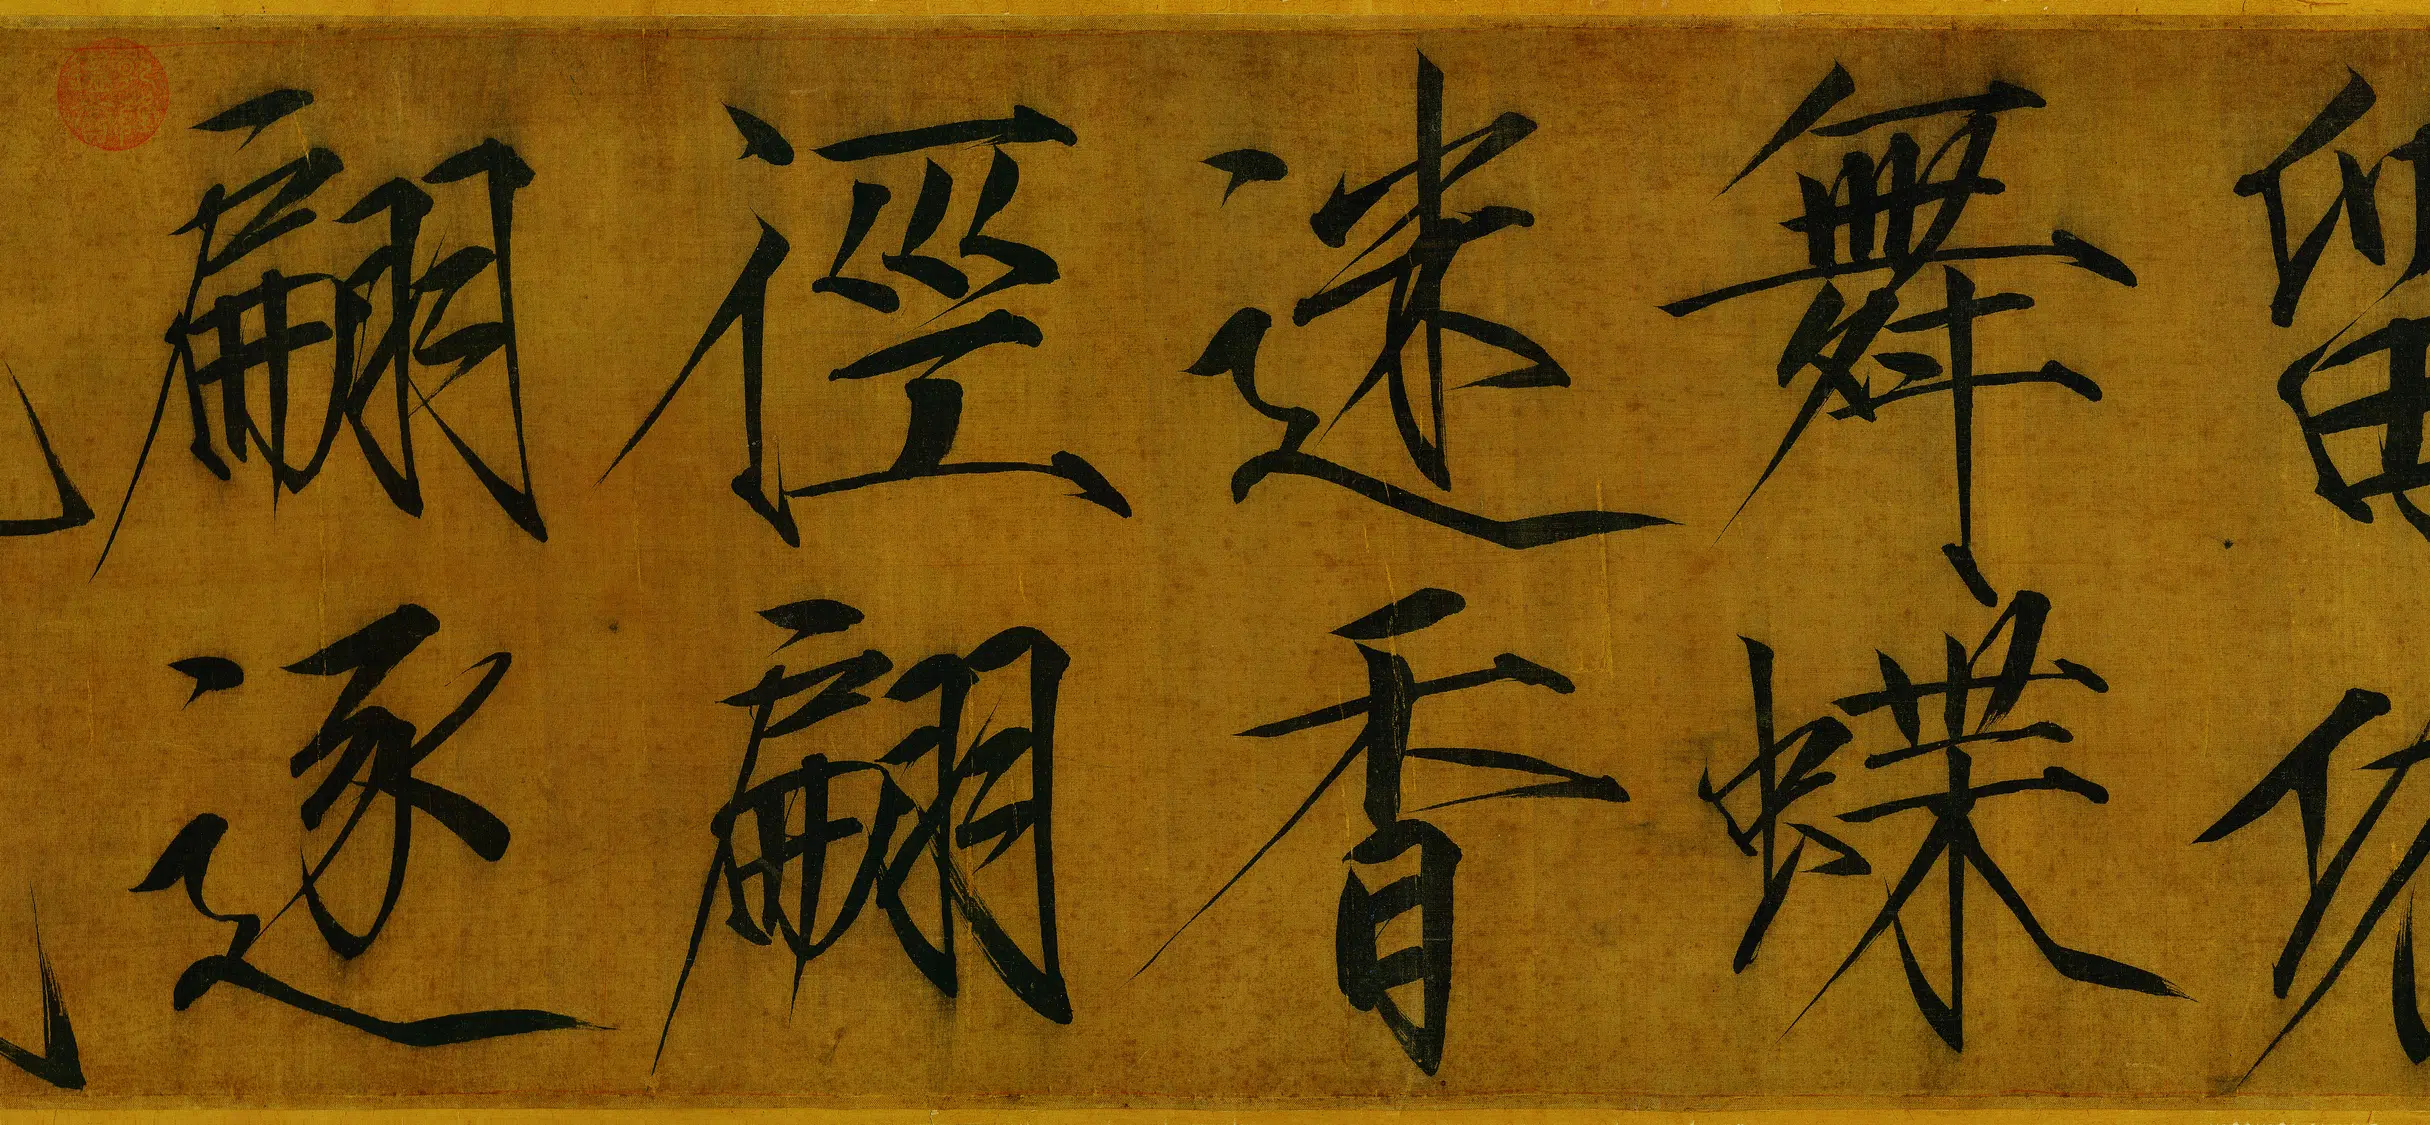 留
舞蝶
迷香
徑翩
翩逐